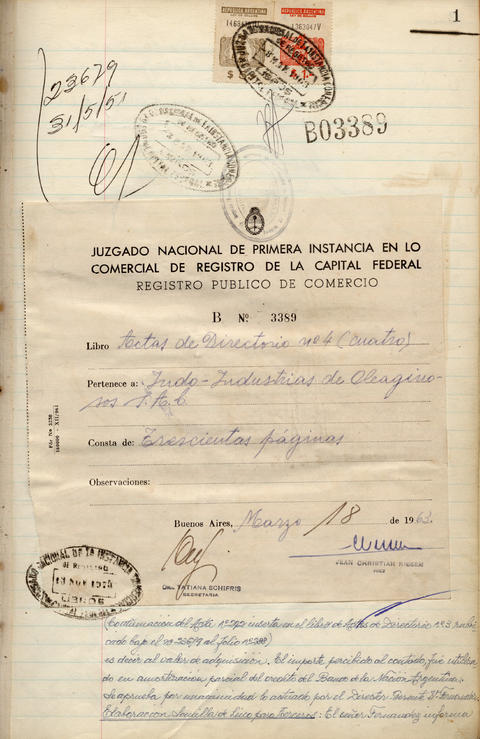 1
REPUBLICA ARGENTINA
REPUBLICA ARGENTINA
LEY DE SELLOS
LEY DE SELLOS
23679
31/5/51
B03389
JUZGADO NACIONAL DE PRIMERA INSTANCIA EN LO
COMERCIAL DE REGISTRO DE LA CAPITAL FEDERAL
REGISTRO PUBLICO DE COMERCIO
B Nº 3389
Libro Actas de Directorio nº 4 (cuatro)
Pertenece a: Indo-Industrias de Oleagino-
sos S.A.C.
Consta de: Trescientas páginas
Observaciones:
Buenos Aires, Marzo 18 de 1963.
Dra. TATIANA SCHIFRIS
SECRETARIA
JEAN CHRISTIAN NISSEN
JUEZ
Continuación del Acta nº 292 inserta en el libro de Actas de Directorio nº 3 rubri-
cado bajo el nº 23679 al folio nº
es decir al valor de adquisición. El importe percibido al contado, fué utiliza-
do en amortización parcial del crédito del Banco de la Nación Argentina.
Se aprueba por unanimidad lo actuado por el Director Gerente Dr. Fernandez
Elaboración Semilla de Lino para terceros: El señor Fernandez informa